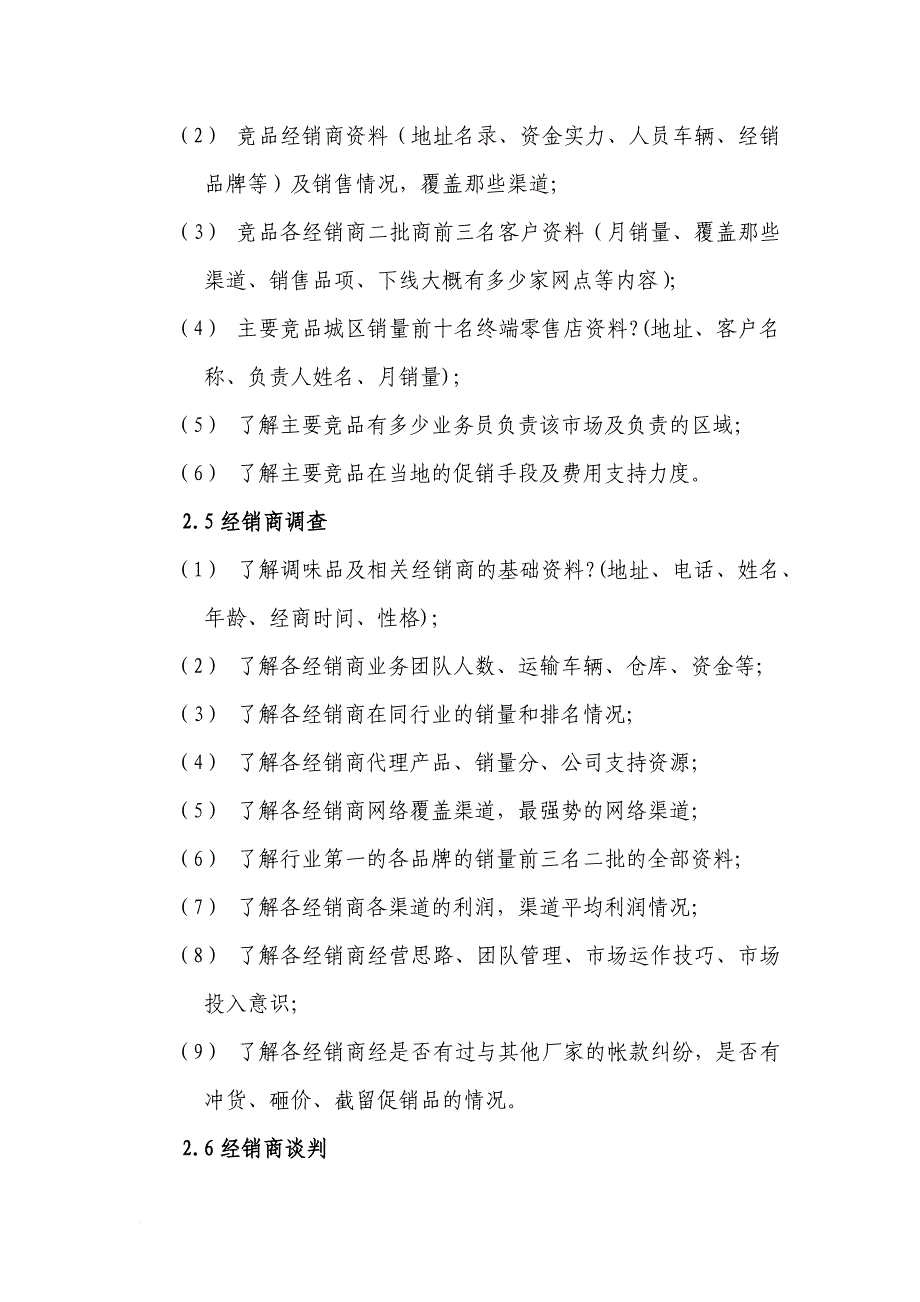 （2） 竞品经销商资料（地址名录、资金实力、人员车辆、经销
品牌等）及销售情况，覆盖那些渠道；
（3） 竞品各经销商二批商前三名客户资料（月销量、覆盖那些
渠道、销售品项、下线大概有多少家网点等内容）；
（4） 主要竞品城区销量前十名终端零售店资料?(地址、客户名
称、负责人姓名、月销量)；
（5） 了解主要竞品有多少业务员负责该市场及负责的区域；
（6） 了解主要竞品在当地的促销手段及费用支持力度。
2.5经销商调查
（1） 了解调味品及相关经销商的基础资料?(地址、电话、姓名、
年龄、经商时间、性格)；
（2） 了解各经销商业务团队人数、运输车辆、仓库、资金等；
（3） 了解各经销商在同行业的销量和排名情况；
（4） 了解各经销商代理产品、销量分、公司支持资源；
（5） 了解各经销商网络覆盖渠道，最强势的网络渠道；
（6） 了解行业第一的各品牌的销量前三名二批的全部资料；
（7） 了解各经销商各渠道的利润，渠道平均利润情况；
（8） 了解各经销商经营思路、团队管理、市场运作技巧、市场
投入意识；
（9） 了解各经销商经是否有过与其他厂家的帐款纠纷，是否有
冲货、砸价、截留促销品的情况。
2.6经销商谈判